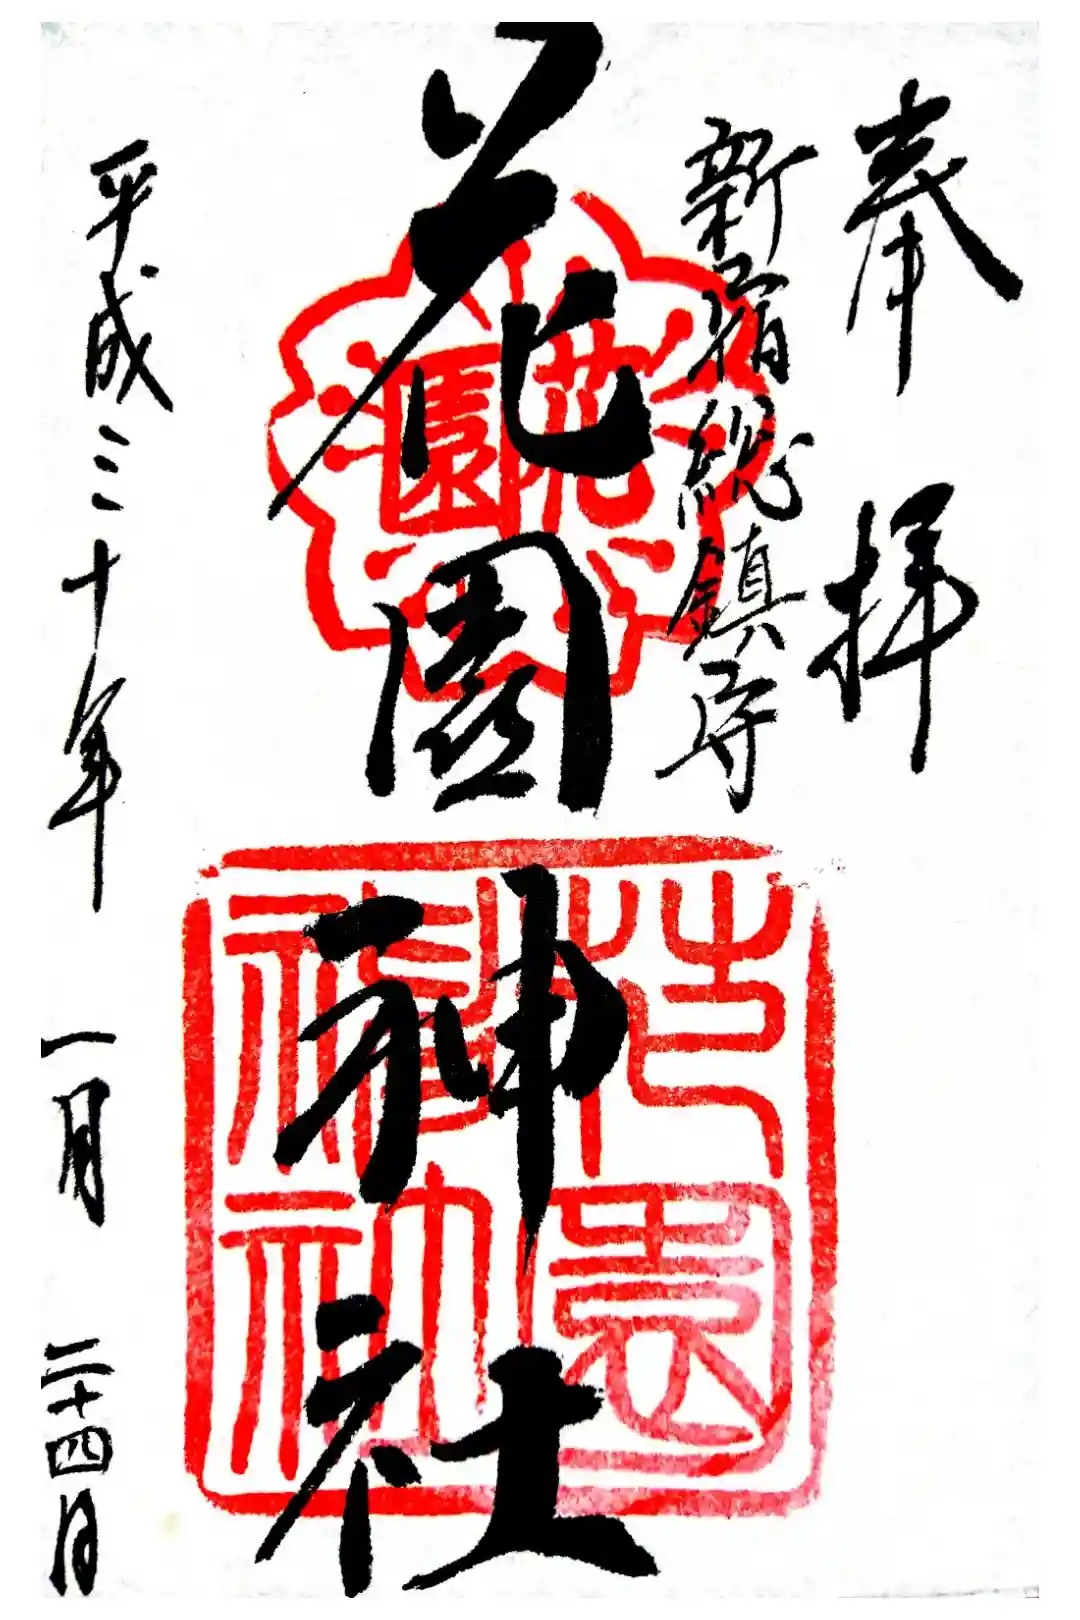 奉拝
新宿総鎮守
花園神社
花園
花園神社
平成三十年一月二十四日